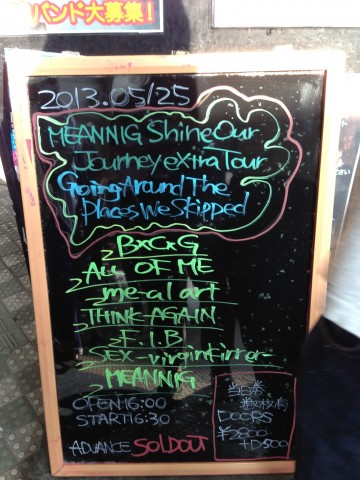 バンド大募集!
2013.05/25
MEANNIG Shine Our
Journey extra Tour
Going Around The
Places We Skipped
BxCxG
ALL OF ME
me-al art
THINK-AGAIN
F.I.B
SEX-virgin killer-
MEANNIG
OPEN 16:00
START 16:30
ADVANCE SOLDOUT
当日券
数枚有
DOORS
¥2800
+D500